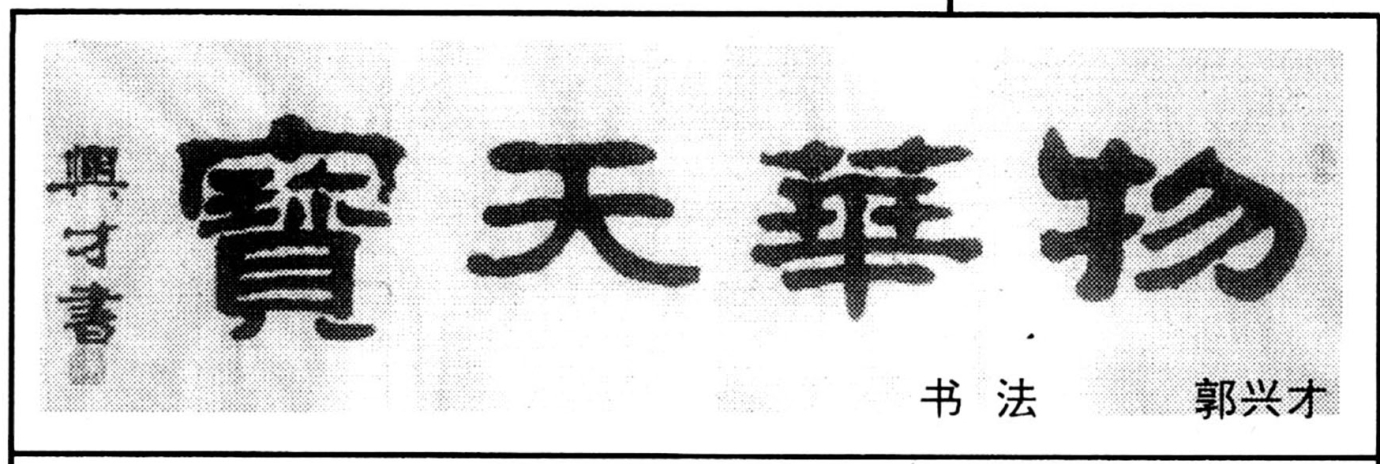 物華天寶
興才書
书法 郭兴才